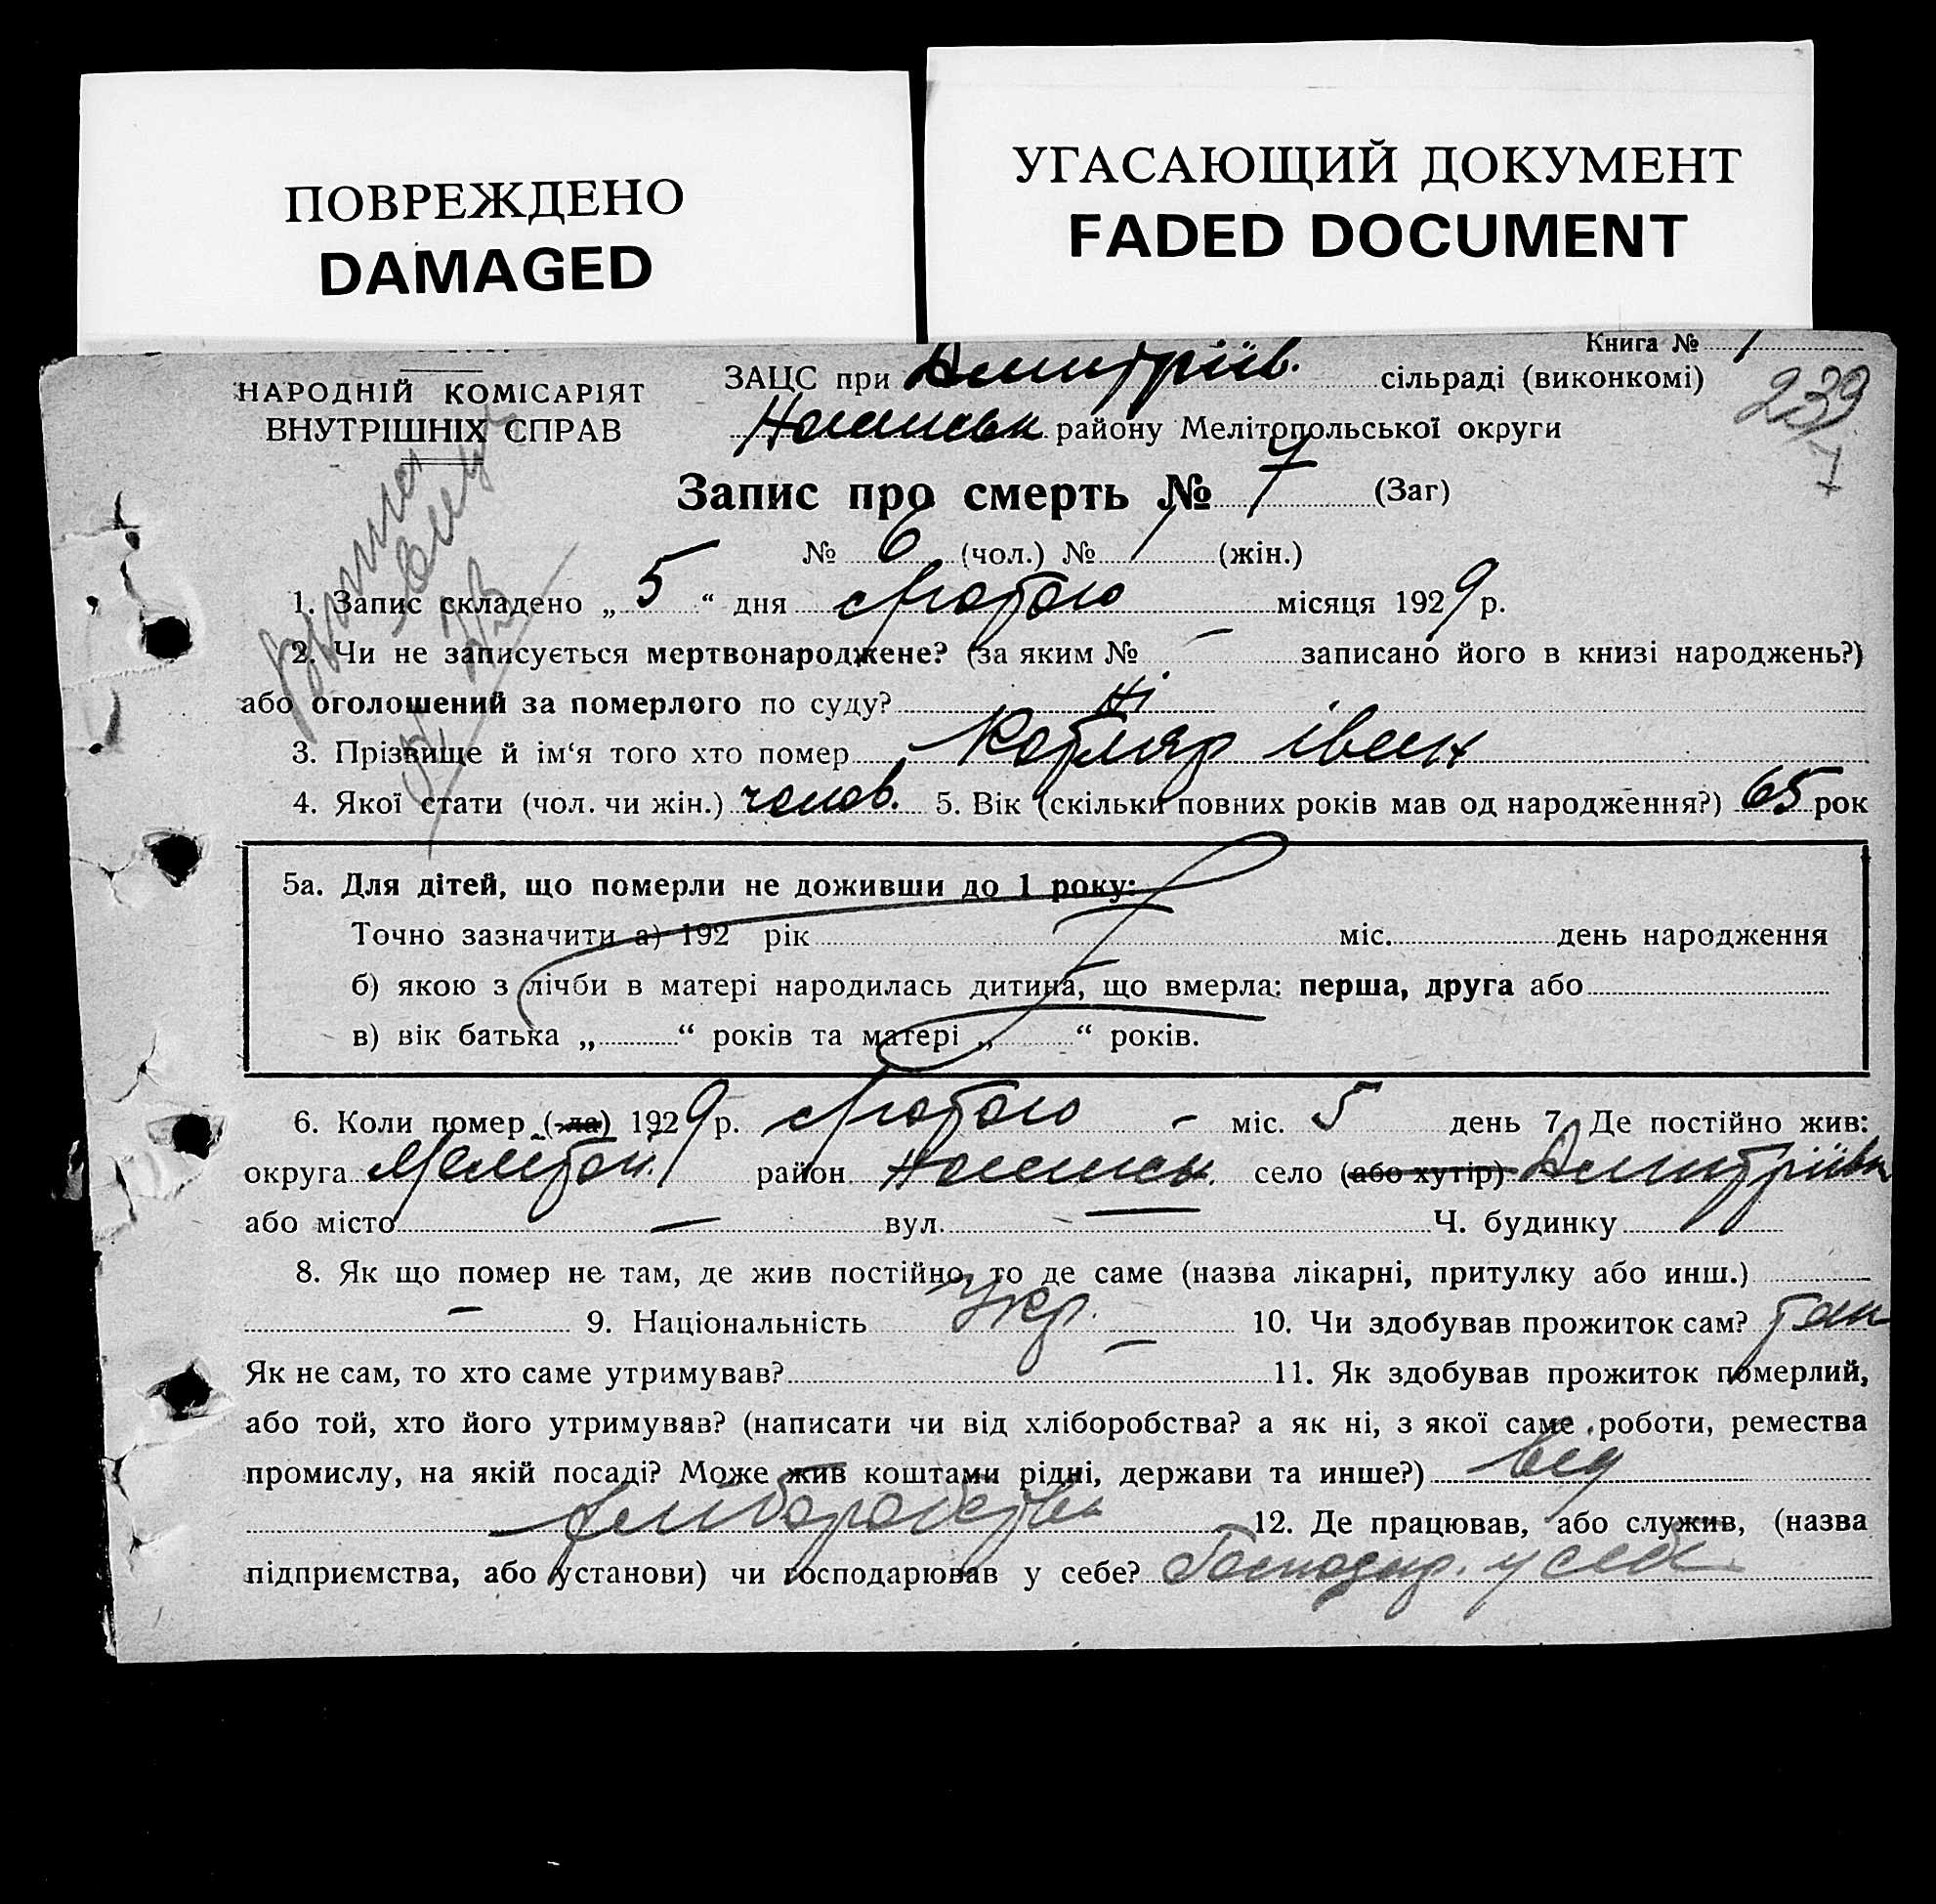 ПОВРЕЖДЕНО
DAMAGED
УГАСАЮЩИЙ ДОКУМЕНТ
FADED DOCUMENT
Книга № 1
239
НАРОДНІЙ КОМІСАРІЯТ
ВНУТРІШНІХ СПРАВ
ЗАЦС при Дмитріїв. сільраді (виконкомі)
району Мелітопольської округи
Запис про смерть № 7 (Заг)
№ 6 (чол.) № 1 (жін.)
1. Запис складено „ 5 “ дня Лютого місяця 1929 р.
2. Чи не записується мертвонароджене? (за яким № – записано його в книзі народжень?)
або оголошений за померлого по суду? Ні
3. Прізвище й ім‘я того хто помер Котляр Іван
4. Якої стати (чол. чи жін.) чолов. 5. Вік (скільки повних років мав од народження?) 65 рок
5а. Для дітей, що померли не доживши до 1 року:
Точно зазначити а) 192 рік міс. день народження
б) якою з лічби в матері народилась дитина, що вмерла: перша, друга або
в) вік батька „ “ років та матері „ “ років.
6. Коли помер (-ла) 1929 р. Лютого – міс. 5 день 7. Де постійно жив:
округа Мелітоп. район село (або хутір) Дмитріївка
або місто — вул. — Ч. будинку
8. Як що помер не там, де жив постійно, то де саме (назва лікарні, притулку або инш.)
– 9. Національність Укр. 10. Чи здобував прожиток сам? так
Як не сам, то хто саме утримував? – 11. Як здобував прожиток померлий,
або той, хто його утримував? (написати чи від хліборобства? а як ні, з якої саме роботи, ремества
промислу, на якій посаді? Може жив коштами рідні, держави та инше?) від
хліборобства 12. Де працював, або служив, (назва
підприємства, або установи) чи господарював у себе? Господар. у себе